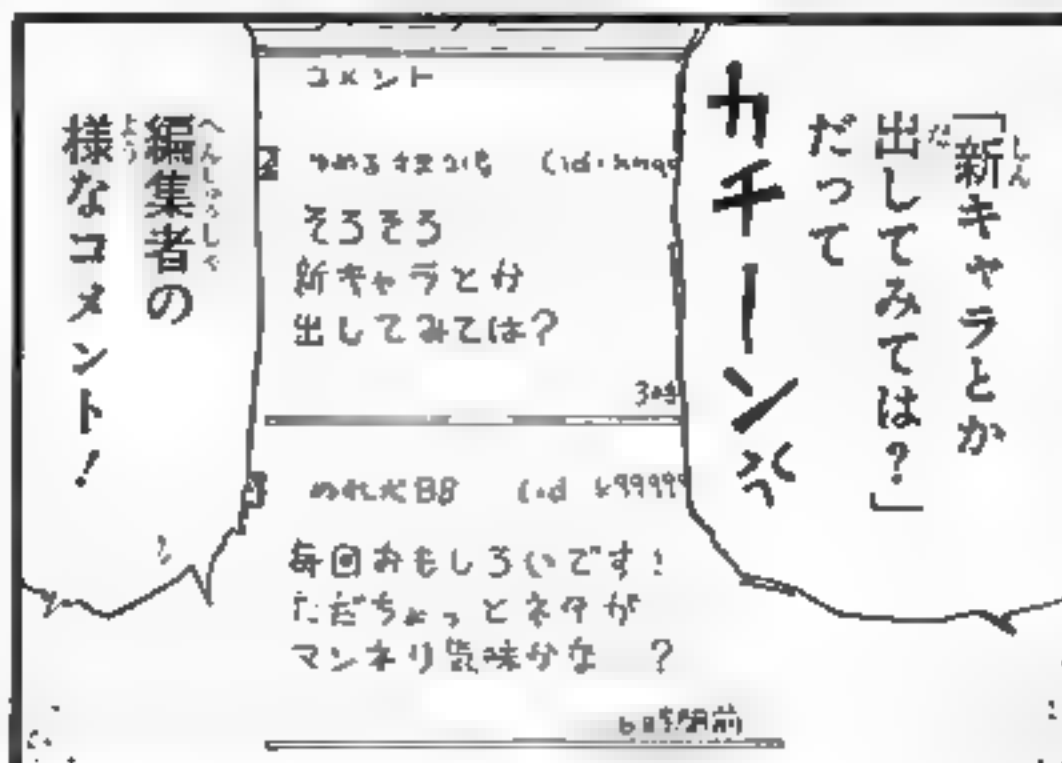 「新キャラとか
出してみては？」
だって
カチーン
コメント
2
そろそろ
新キャラとか
出してみては？
3
ぬれ犬BB (id k99999
毎回おもしろいです！
ただちょっとネタが
マンネリ気味かな ？
6時間前
編集者の
様なコメント！